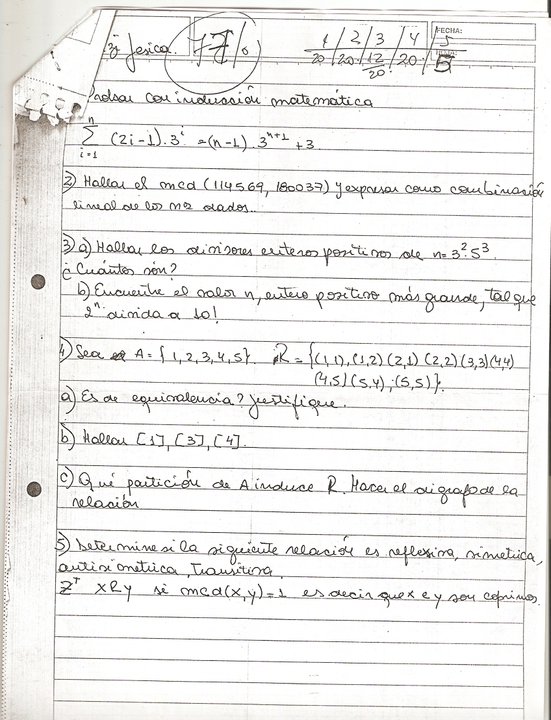 Jesica. 77% 1/2/3/4/5 FECHA:
20 20 12 20 5
20
Probar con inducción matemática
n
∑ (2i-1).3^i = (n-1).3^(n+1) + 3.
i=1
2) Hallar el mcd (114569, 180037) y expresar como combinación
lineal de los nos dados.
3) a) Hallar los divisores enteros positivos de n=3².5³.
¿Cuántos són?
b) Encuentre el valor n, entero positivo más grande, tal que
2^n divida a 10!
4) Sea A={1,2,3,4,5}. R={(1,1),(1,2)(2,1)(2,2)(3,3)(4,4)
(4,5)(5,4),(5,5)}.
a) Es de equivalencia? Justifique.
b) Hallar [1],[3],[4].
c) Qué partición de A induce R. Hacer el digrafo de la
relación
5) Determine si la siguiente relación es reflexiva, simétrica,
antisimétrica, transitiva.
Z⁺ xRy si mcd(x,y)=1 es decir que x e y son coprimos.